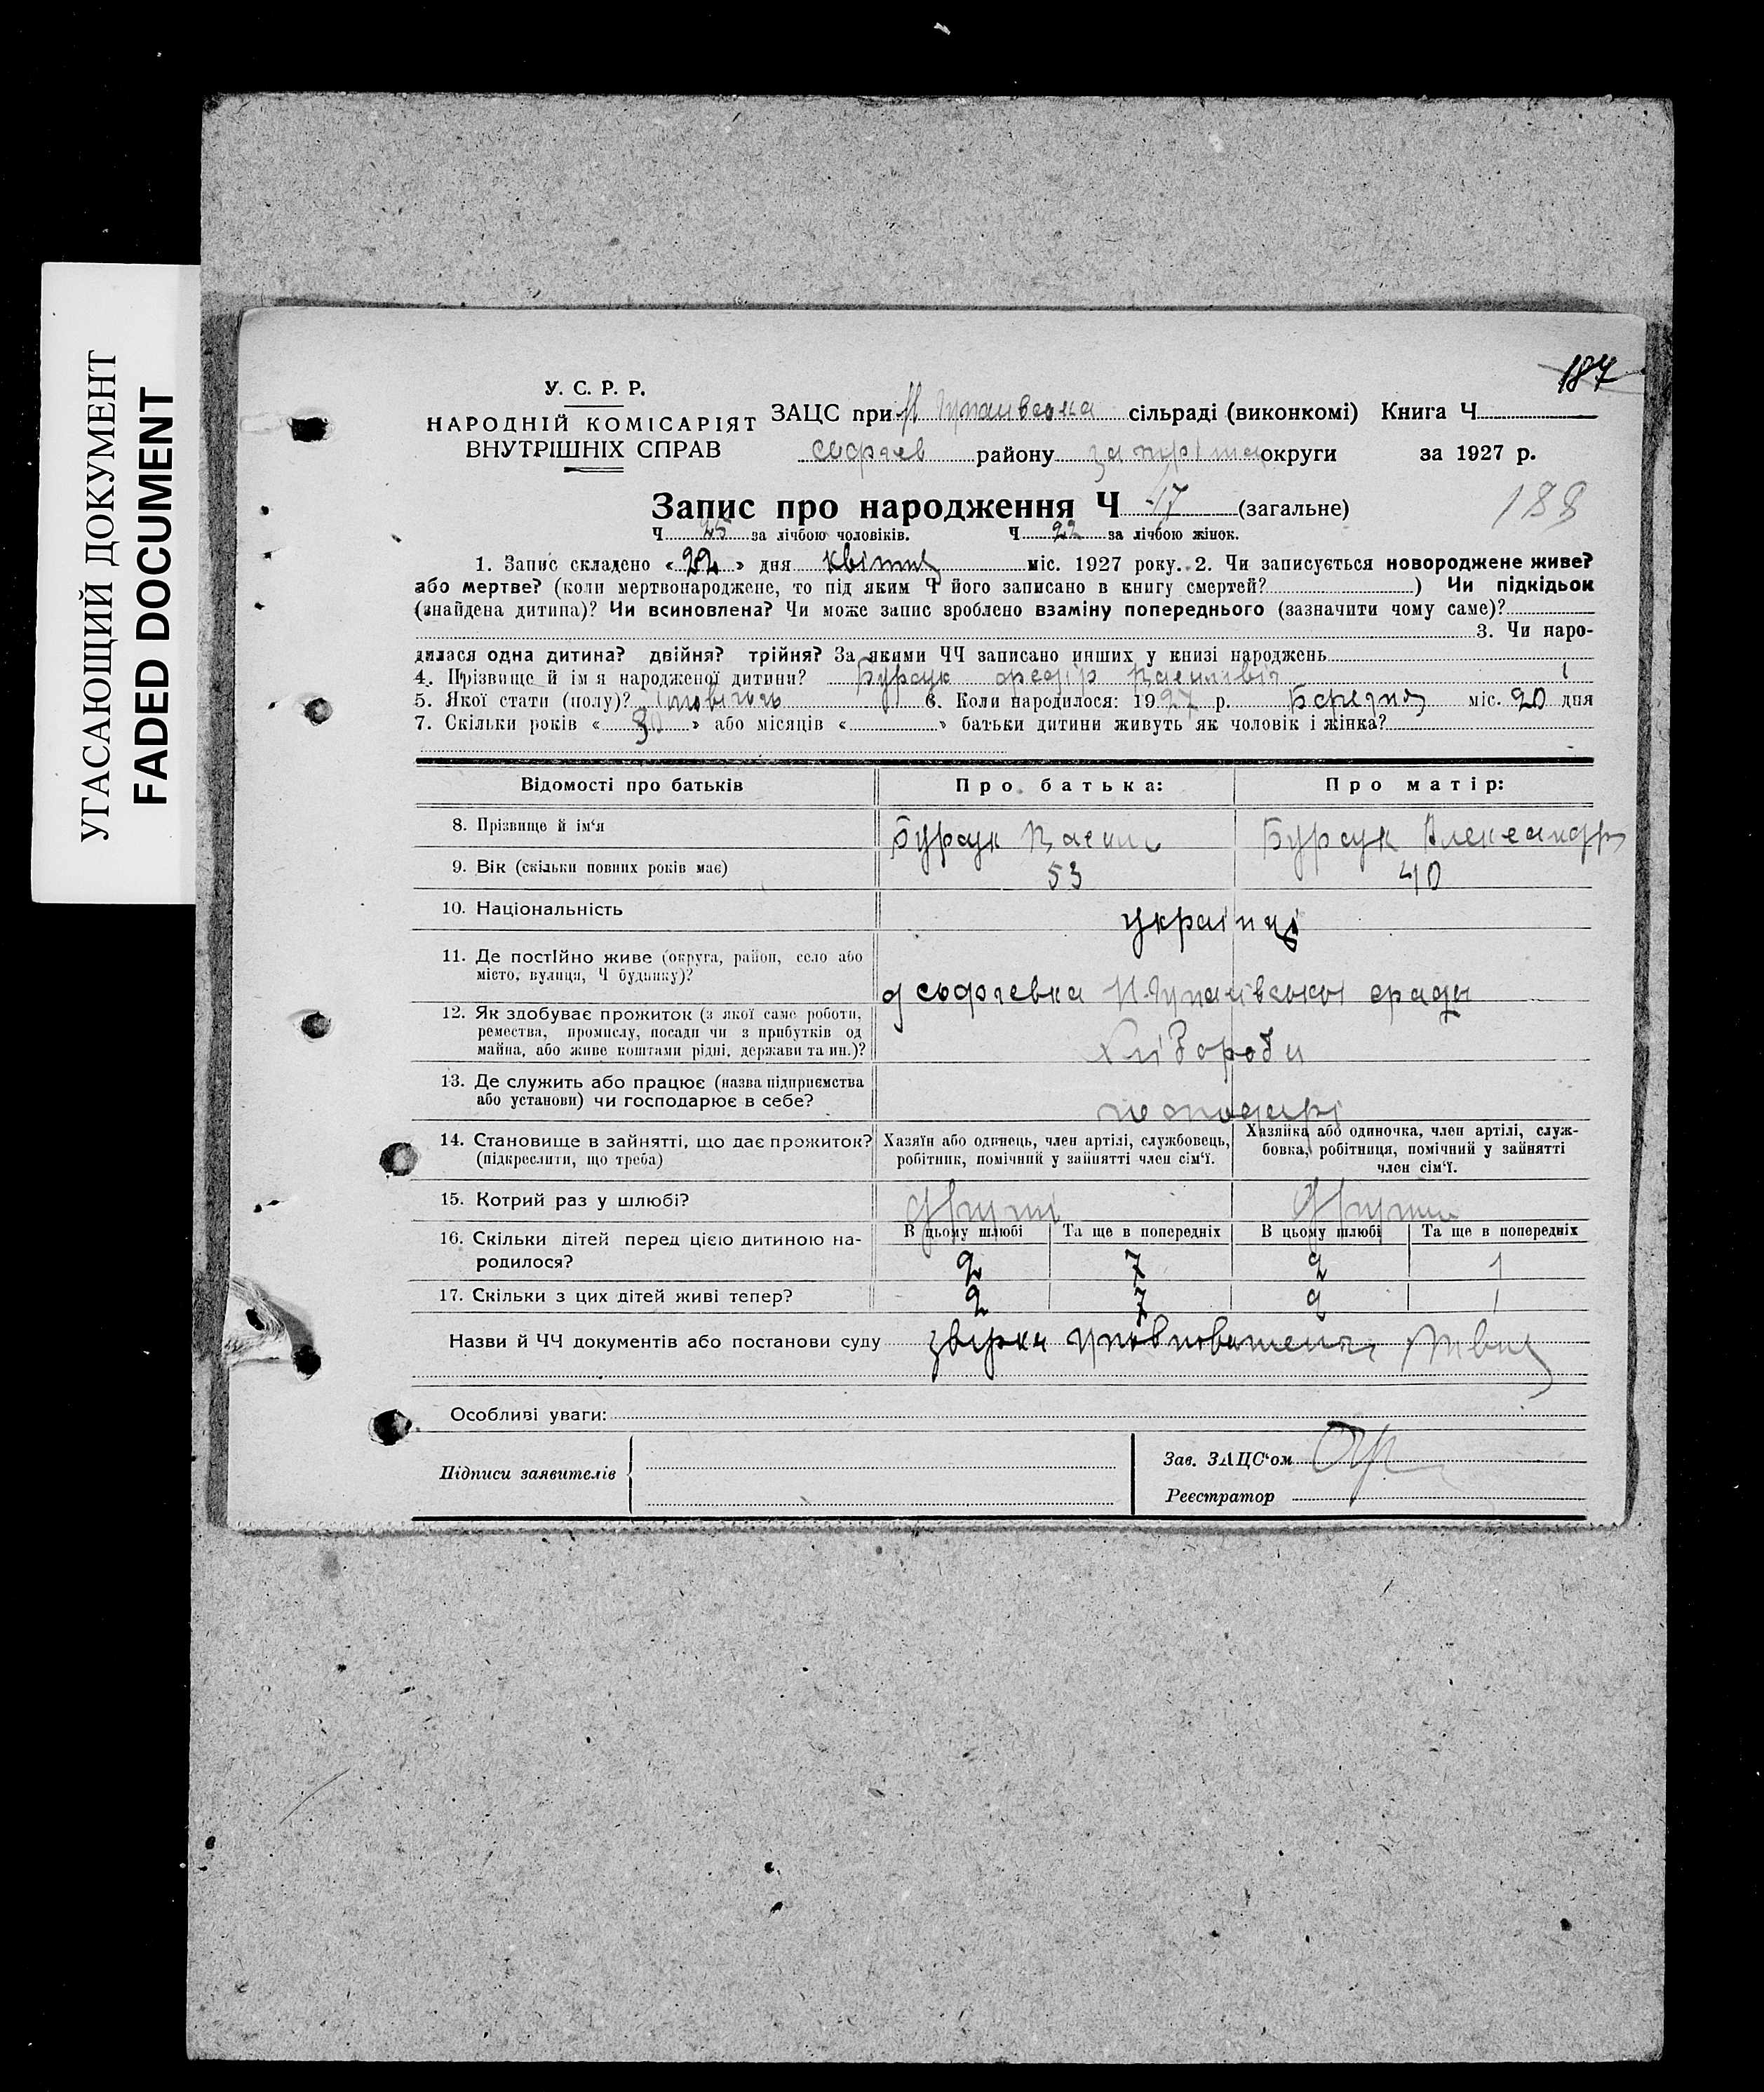 УГАСАЮЩИЙ ДОКУМЕНТ
FADED DOCUMENT
187
У. С. Р. Р.
НАРОДНІЙ КОМІСАРІЯТ
ВНУТРІШНІХ СПРАВ
ЗАЦС при сільраді (виконкомі) Книга Ч
софіев району округи за 1927 р.
Запис про народження Ч 47 (загальне)
188
Ч 25 за лічбою чоловіків. Ч 22 за лічбою жінок.
1. Запис складено « 22 » дня квітня міс. 1927 року. 2. Чи записується новороджене живе?
або мертве? (коли мертвонароджене, то під яким Ч його записано в книгу смертей? ) Чи підкідьок
(знайдена дитина)? Чи всиновлена? Чи може запис зроблено взаміну попереднього (зазначити чому саме)?
3. Чи наро-
дилася одна дитина? двійня? трійня? За якими ЧЧ записано инших у книзі народжень
4. Прізвище й ім я народженої дитини? Бурсук
5. Якої стати (полу)? 6. Коли народилося: 1927 р. Березня міс. 20 дня
7. Скільки років « » або місяців « » батьки дитини живуть як чоловік і жінка?
Відомості про батьків Про батька: Про матір:
8. Прізвище й ім'я Бурсук Бурсук Александр
9. Вік (скільки повних років має) 53 40
10. Національність украінці
11. Де постійно живе (округа, район, село або
місто, вулиця, Ч будинку)?
софіевка
12. Як здобуває прожиток (з якої саме роботи,
ремества, промислу, посади чи з прибутків од
майна, або живе коштами рідні, держави та ин.)?
Хлібороби
13. Де служить або працює (назва підприємства
або установи) чи господарює в себе?
14. Становище в зайнятті, що дає прожиток?
(підкреслити, що треба)
Хазяїн або одинець, член артілі, службовець,
робітник, помічний у зайнятті член сім'ї.
Хазяйка або одиночка, член артілі, служ-
бовка, робітниця, помічний у зайнятті
член сім'ї.
15. Котрий раз у шлюбі?
В цьому шлюбі Та ще в попередніх В цьому шлюбі Та ще в попередніх
16. Скільки дітей перед цією дитиною на-
родилося?
2 7 2 1
17. Скільки з цих дітей живі тепер? 2 7 2 1
Назви й ЧЧ документів або постанови суду
Особливі уваги:
Підписи заявителів
Зав. ЗАЦС'ом
Реєстратор